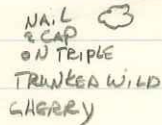 NAIL
& CAP
ON TRIPLE
TRUNKED WILD
CHERRY